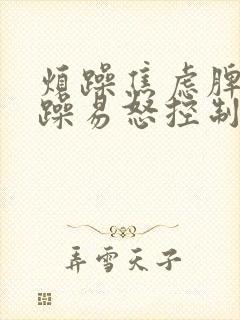 煩躁焦虑脾
躁易怒控制
弄雪天子